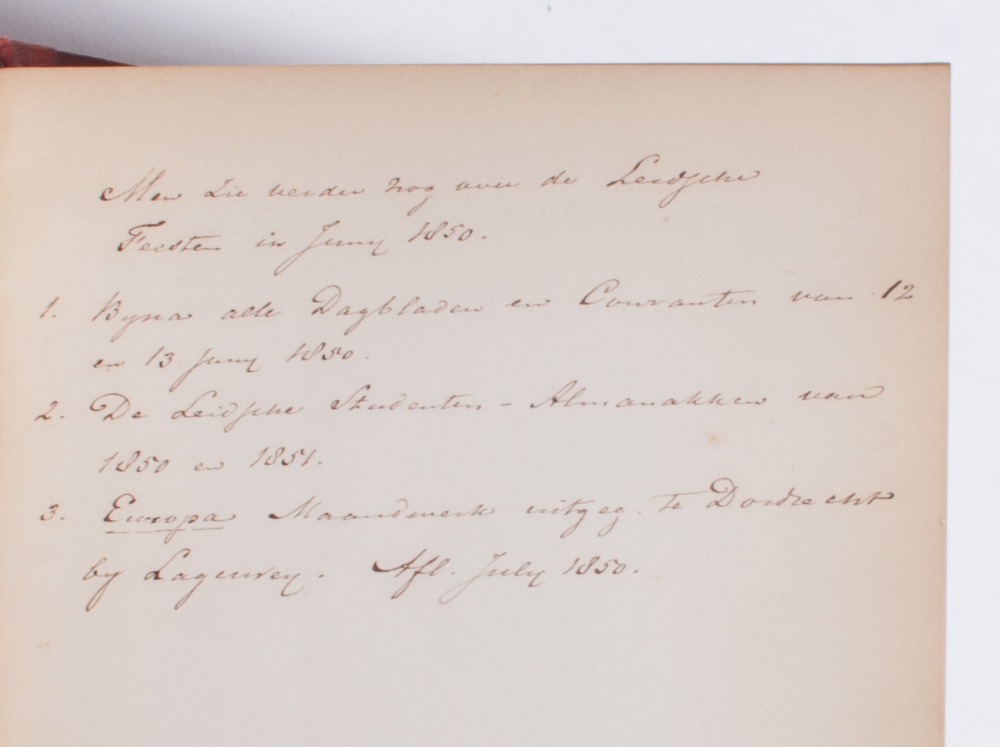 Men zie verder nog over de Leidsche
Feesten in Juny 1850.
1. Byna alle Dagbladen en Couranten van 12
en 13 Juny 1850.
2. De Leidsche Studenten-Almanakken van
1850 en 1851.
3. Europa Maandwerk uitgeg. te Dordrecht
by Lagerwey. Afl. July 1850.